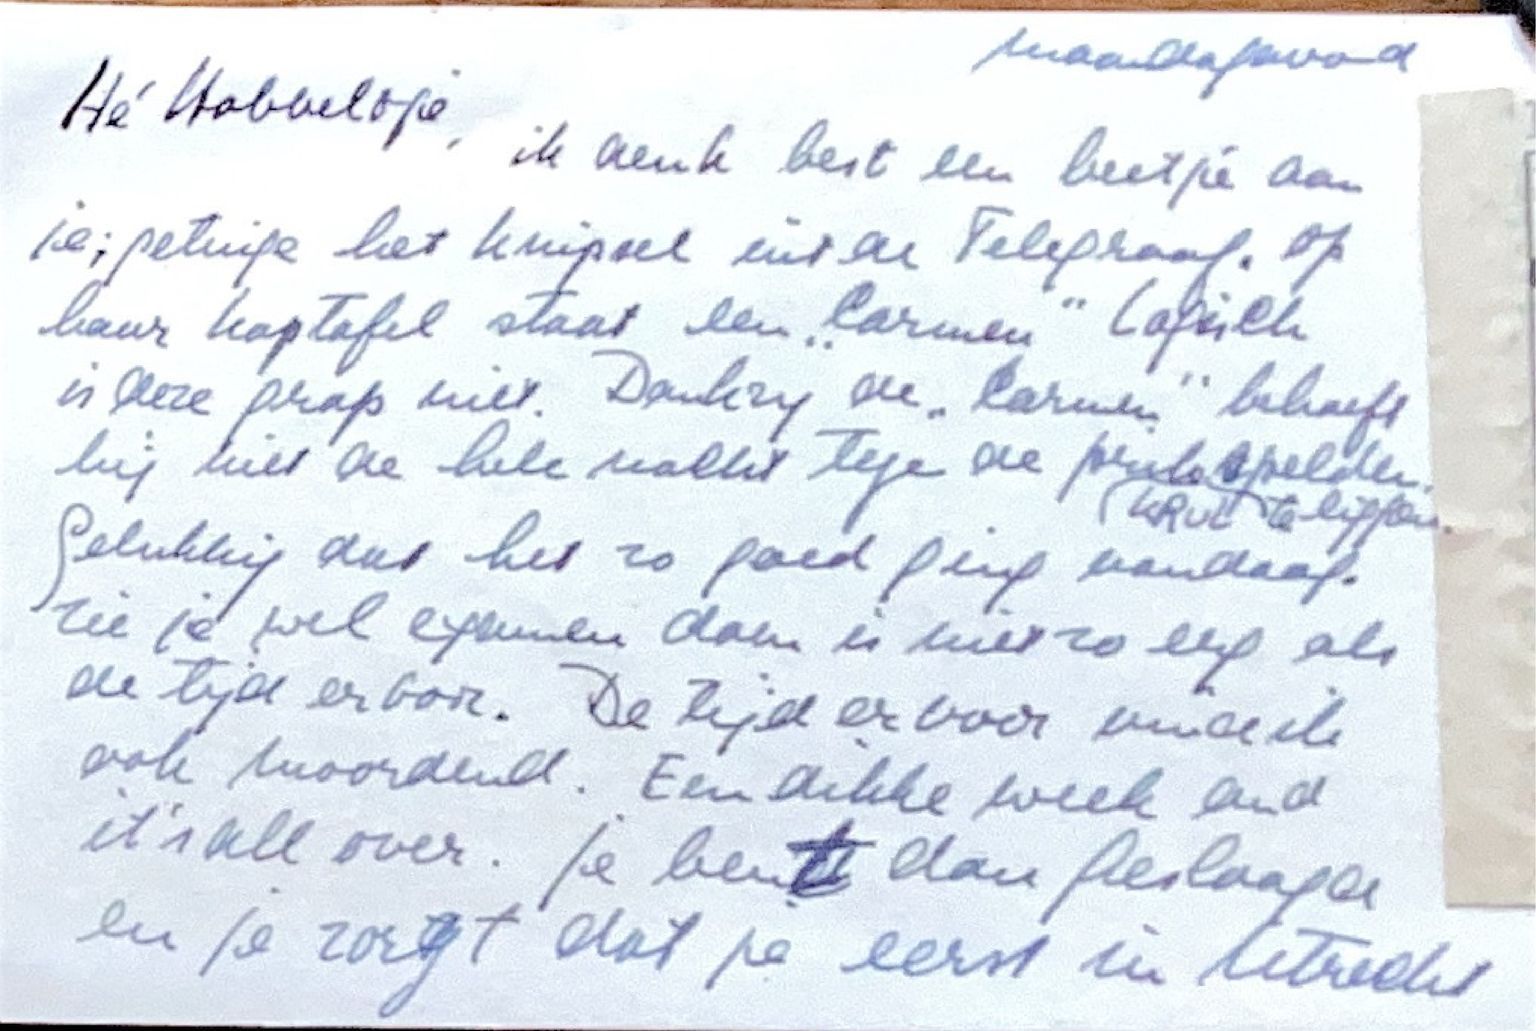 maandagavond
Hé Hobbeltje,
ik denk best een beetje aan
je; getuige het knipsel uit de Telegraaf. Op
haar kaptafel staat een „Carmen" Logisch
is deze grap niet. Dankzij de „Carmen" behoeft
hij niet de hele nacht tegen de spelden.
(KRUL te liggen.
Gelukkig dat het zo goed ging vandaag.
zie je wel examen doen is niet zo erg als
de tijd ervoor. De tijd ervoor vind ik
ook moordend. Een dikke week and
it's all over. je bent dan geslaagd
en je zorgt dat je eerst in Utrecht